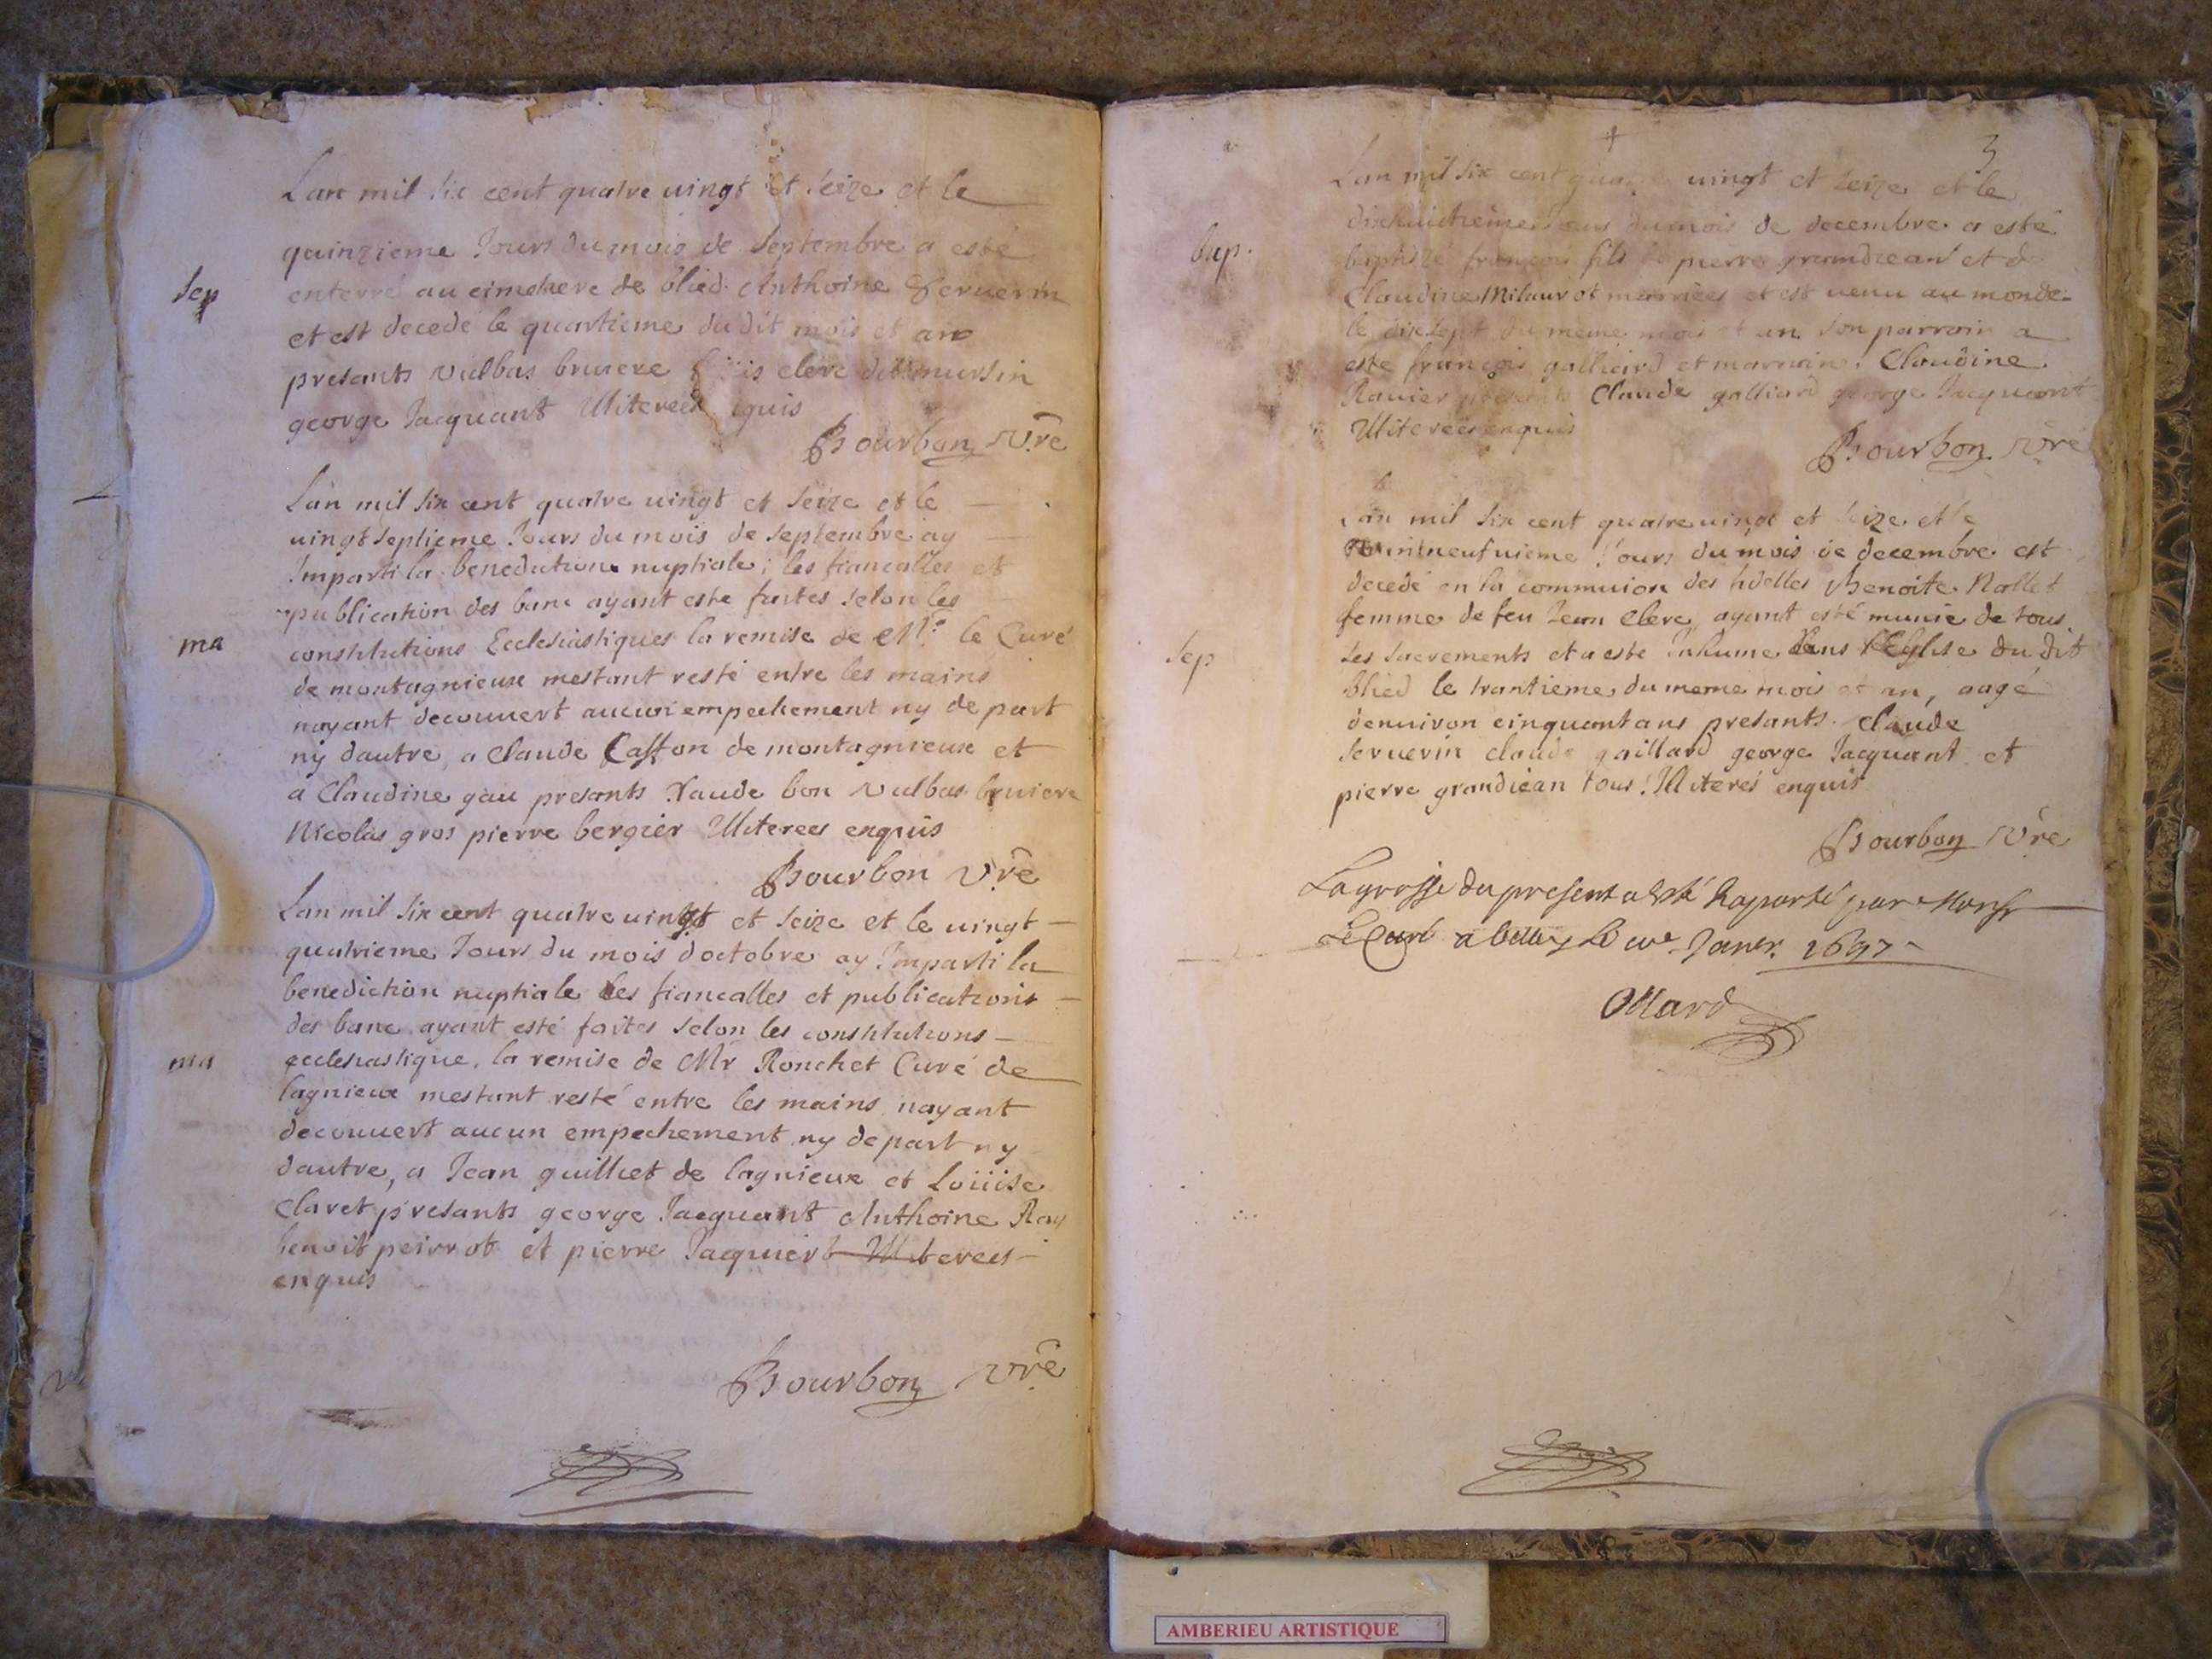 Lan mil six cent quatre uingt et seize et le
quinzieme Jours du mois de septembre a esté
sep
enterré au cimetiere de blied Anthoine Seruerin
et est decedé le quartieme du dit mois et an
presants vulbas bruiere clerc dit mursin
george Jacquant Illiterees
Bourbon vre
Lan mil six cent quatre uingt et seize et le
uingt septieme Jours du mois de septembre ay
Imparti la benediction nuptiale; les fiancalles et
publication des banc ayant esté faites selon les
ma
constitutions Ecclesiastiques la remise de Mr. le Curé
de montagnieux mestant resté entre les mains
nayant decouuert aucun empechement ny de part
ny dautre, a Claude Caston de montagnieux et
a Claudine gau presants Claude bon vulbas bruiere
Nicolas gros pierre bergier Illiterees enquis
Bourbon vre
Lan mil six cent quatre uingt et seize et le uingt
quatrieme Jours du mois doctobre ay Imparti la
benediction nuptiale les fiancalles et publications
des banc ayant esté faites selon les constitutions
ma
ecclesiastique, la remise de Mr Ronchet Curé de
lagnieux mestant resté entre les mains nayant
decouuert aucun empechement ny de part ny
dautre, a Jean guilliet de lagnieux et Louiise
Claret presants george Jacquant Anthoine Ray
benoit peirrot et pierre Jacquier Illiterees
enquis
Bourbon vre
3
Lan mil six cent uingt et seize et le
dixhuictieme Jours du mois de decembre a esté
bap.
baptizé francois fils de pierre grandiean et de
Claudine Milaurot marriées et est uenu au monde
le dixsept du meme mois et an son parroin a
esté francois galliard et marraine Claudine
Rauier presants Claude galliard george Jacquant
Illiterees enquis
Bourbon vre
Lan mil six cent quatre uingt et seize et le
neufuieme Jours du mois de decembre est
decedé en la commuion des fidelles Benoite Rollet
femme de feu Jean Clerc, ayant esté munie de tous
sep
les sacrements et a esté Inhume dans lEglise du dit
blied le trantieme du meme mois et an, aagé
denuiron cinquant ans presants Claude
seruerin claude gaillard george Jacquant et
pierre grandiean tous Illiteres enquis
Bourbon vre
La grosse du present a esté Raporté par Monsr
Le Curé a belley Le Janer. 1697
Ollard
AMBERIEU ARTISTIQUE